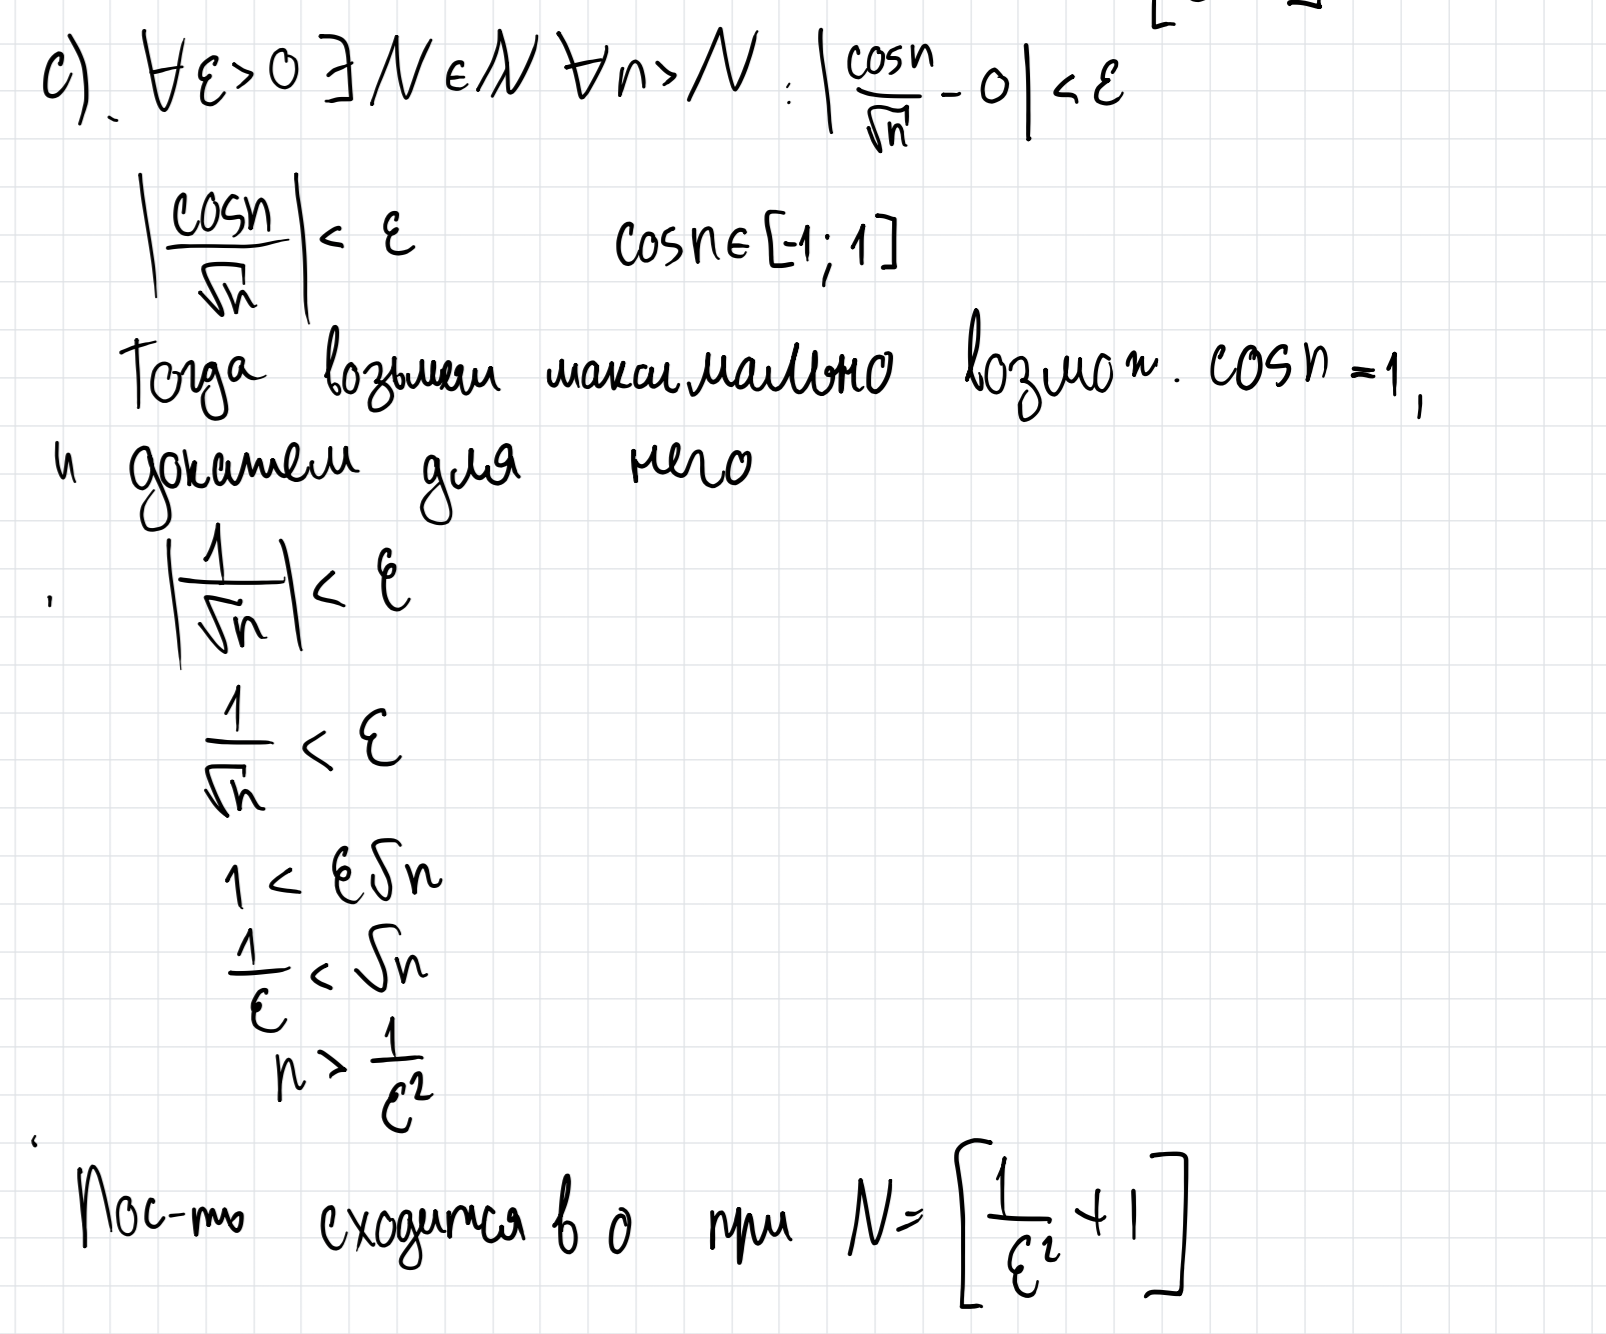 c). ∀ε>0 ∃N∈ℕ ∀n>N : |cosn/√n - 0| < ε
|cosn/√n| < ε cosn∈[-1; 1]
Тогда возьмем максимально возмож. cosn = 1,
и докажем для него
|1/√n| < ε
1/√n < ε
1 < ε√n
1/ε < √n
n > 1/ε²
Пос-ть сходится в 0 при N = [1/ε² + 1]